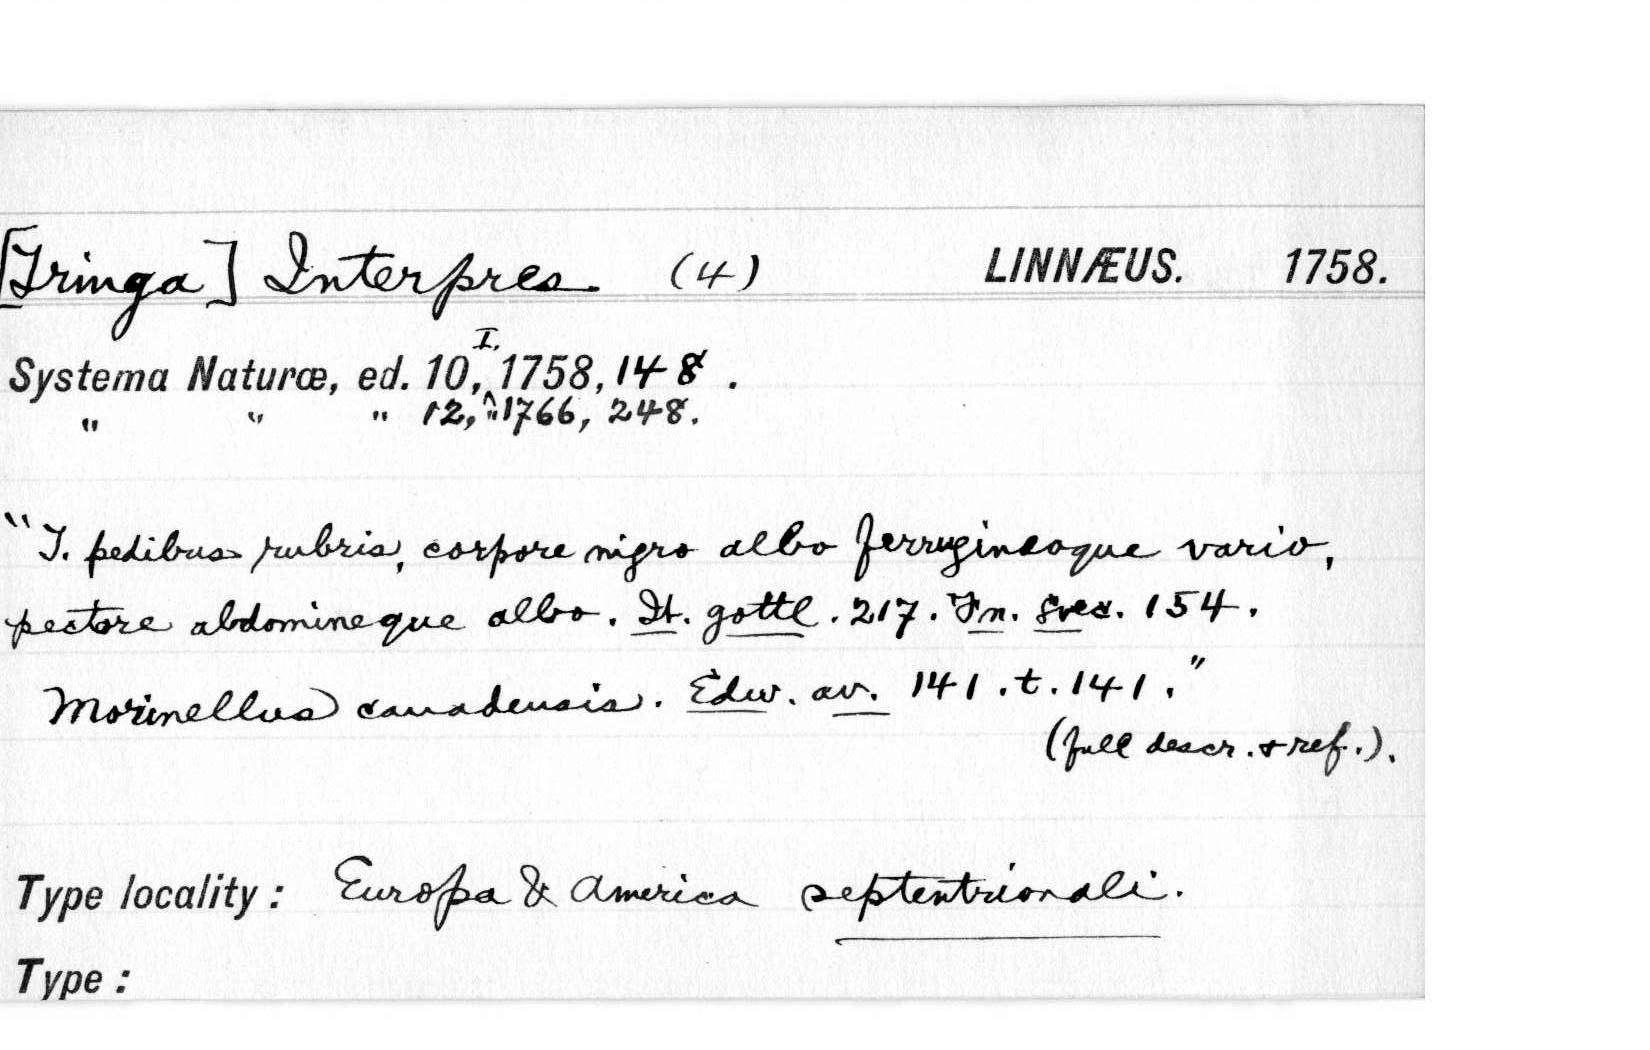 [Tringa] Interpres. (4) LINNÆUS. 1758.
Systema Naturæ, ed. 10, I, 1758, 148.
" " " 12, " 1766, 248.
"T. pedibus rubris, corpore nigro albo ferrugineoque vario,
pectore abdomineque albo. It. gottl. 217. Fn. svec. 154.
Morinellus canadensis. Edw. av. 141. t. 141."
(full descr. & ref.).
Type locality: Europa & America septentrionali.
Type: